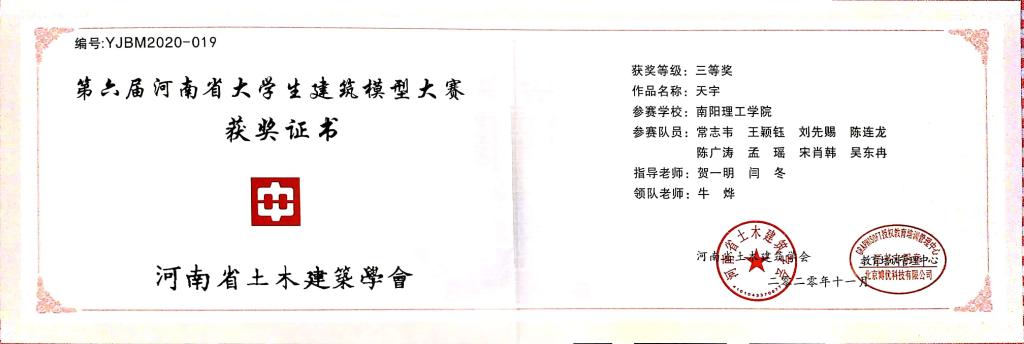 编号:YJBM2020-019
第六届河南省大学生建筑模型大赛
获奖证书
河南省土木建築學會
获奖等级：三等奖
作品名称：天宇
参赛学校：南阳理工学院
参赛队员：常志韦 王颖钰 刘先赐 陈连龙
陈广涛 孟 瑶 宋肖韩 吴东冉
指导老师：贺一明 闫 冬
领队老师：牛 烨
河南省土木建筑学会
二零二零年十一月
河南省土木建筑学会
GRAPHISOFT授权教育培训管理中心
教育培训管理中心
北京婷优科技有限公司